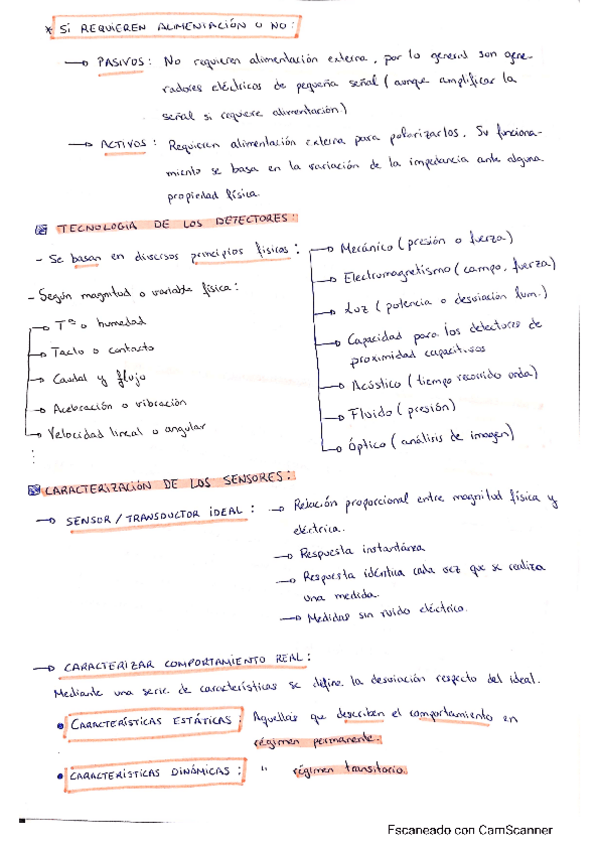 * SI REQUIEREN ALIMENTACIÓN O NO:
→ PASIVOS: No requieren alimentación externa, por lo general son gene-
radores eléctricos de pequeña señal (aunque amplificar la
señal si requiere alimentación)
→ ACTIVOS: Requieren alimentación externa para polarizarlos. Su funciona-
miento se basa en la variación de la impedancia ante alguna
propiedad física.
TECNOLOGIA DE LOS DETECTORES:
- Se basan en diversos principios físicos:
→ Mecánico (presión o fuerza)
→ Electromagnetismo (campo, fuerza)
→ Luz (potencia o desviación lum.)
→ Capacidad para los detectores de
proximidad capacitivos
→ Acústico (tiempo recorrido onda)
→ Fluido (presión)
→ Óptico (análisis de imagen)
- Según magnitud o variable física:
→ Tª o humedad
→ Tacto o contacto
→ Caudal y flujo
→ Aceleración o vibración
→ Velocidad lineal o angular
⋮
CARACTERIZACIÓN DE LOS SENSORES:
→ SENSOR / TRANSDUCTOR IDEAL:
→ Relación proporcional entre magnitud física y
eléctrica.
→ Respuesta instantánea
→ Respuesta idéntica cada vez que se realiza
una medida.
→ Medidas sin ruido eléctrico.
→ CARACTERIZAR COMPORTAMIENTO REAL:
Mediante una serie de características se define la desviación respecto del ideal.
• CARACTERÍSTICAS ESTÁTICAS: Aquellas que describen el comportamiento en
régimen permanente.
• CARACTERISTICAS DINÁMICAS: " régimen transitorio.
Escaneado con CamScanner